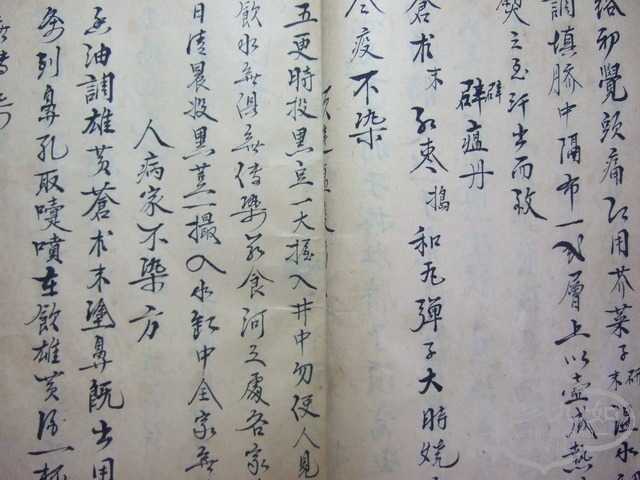 初覺頭痛即用芥菜子研末溫水
調填臍中隔布一二層上以壺盛熱
熨之至汗出而愈
辟瘟丹
蒼术末紅棗搗和丸彈子大時燒
疫不染
五更時投黑豆一大握入井中勿使人見
飲水無俱無傳染若食河之處各家
日清晨投黑荳一撮入水缸中全家無
人病家不染方
香油調雄黄蒼术末塗鼻既出用
列鼻孔取嚏噴再飲雄黃酒一杯